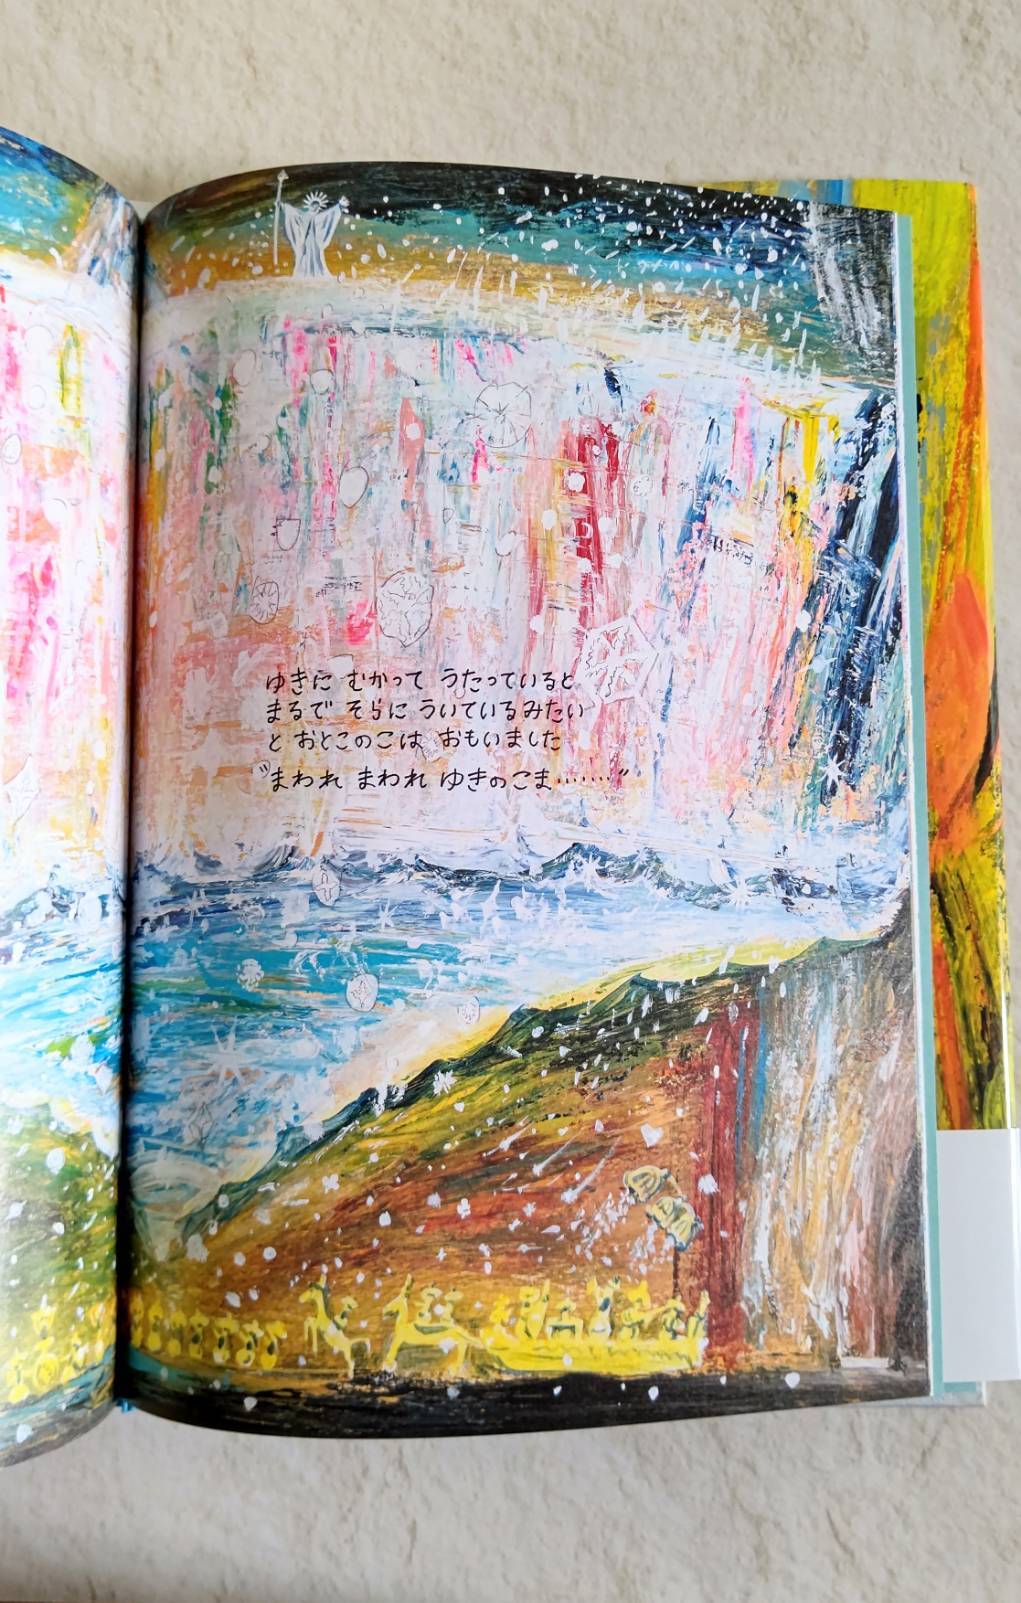 ゆきに むかって うたっていると
まるで そらに ういているみたい
と おとこのこは おもいました
"まわれ まわれ ゆきのこま・・・・・・・"